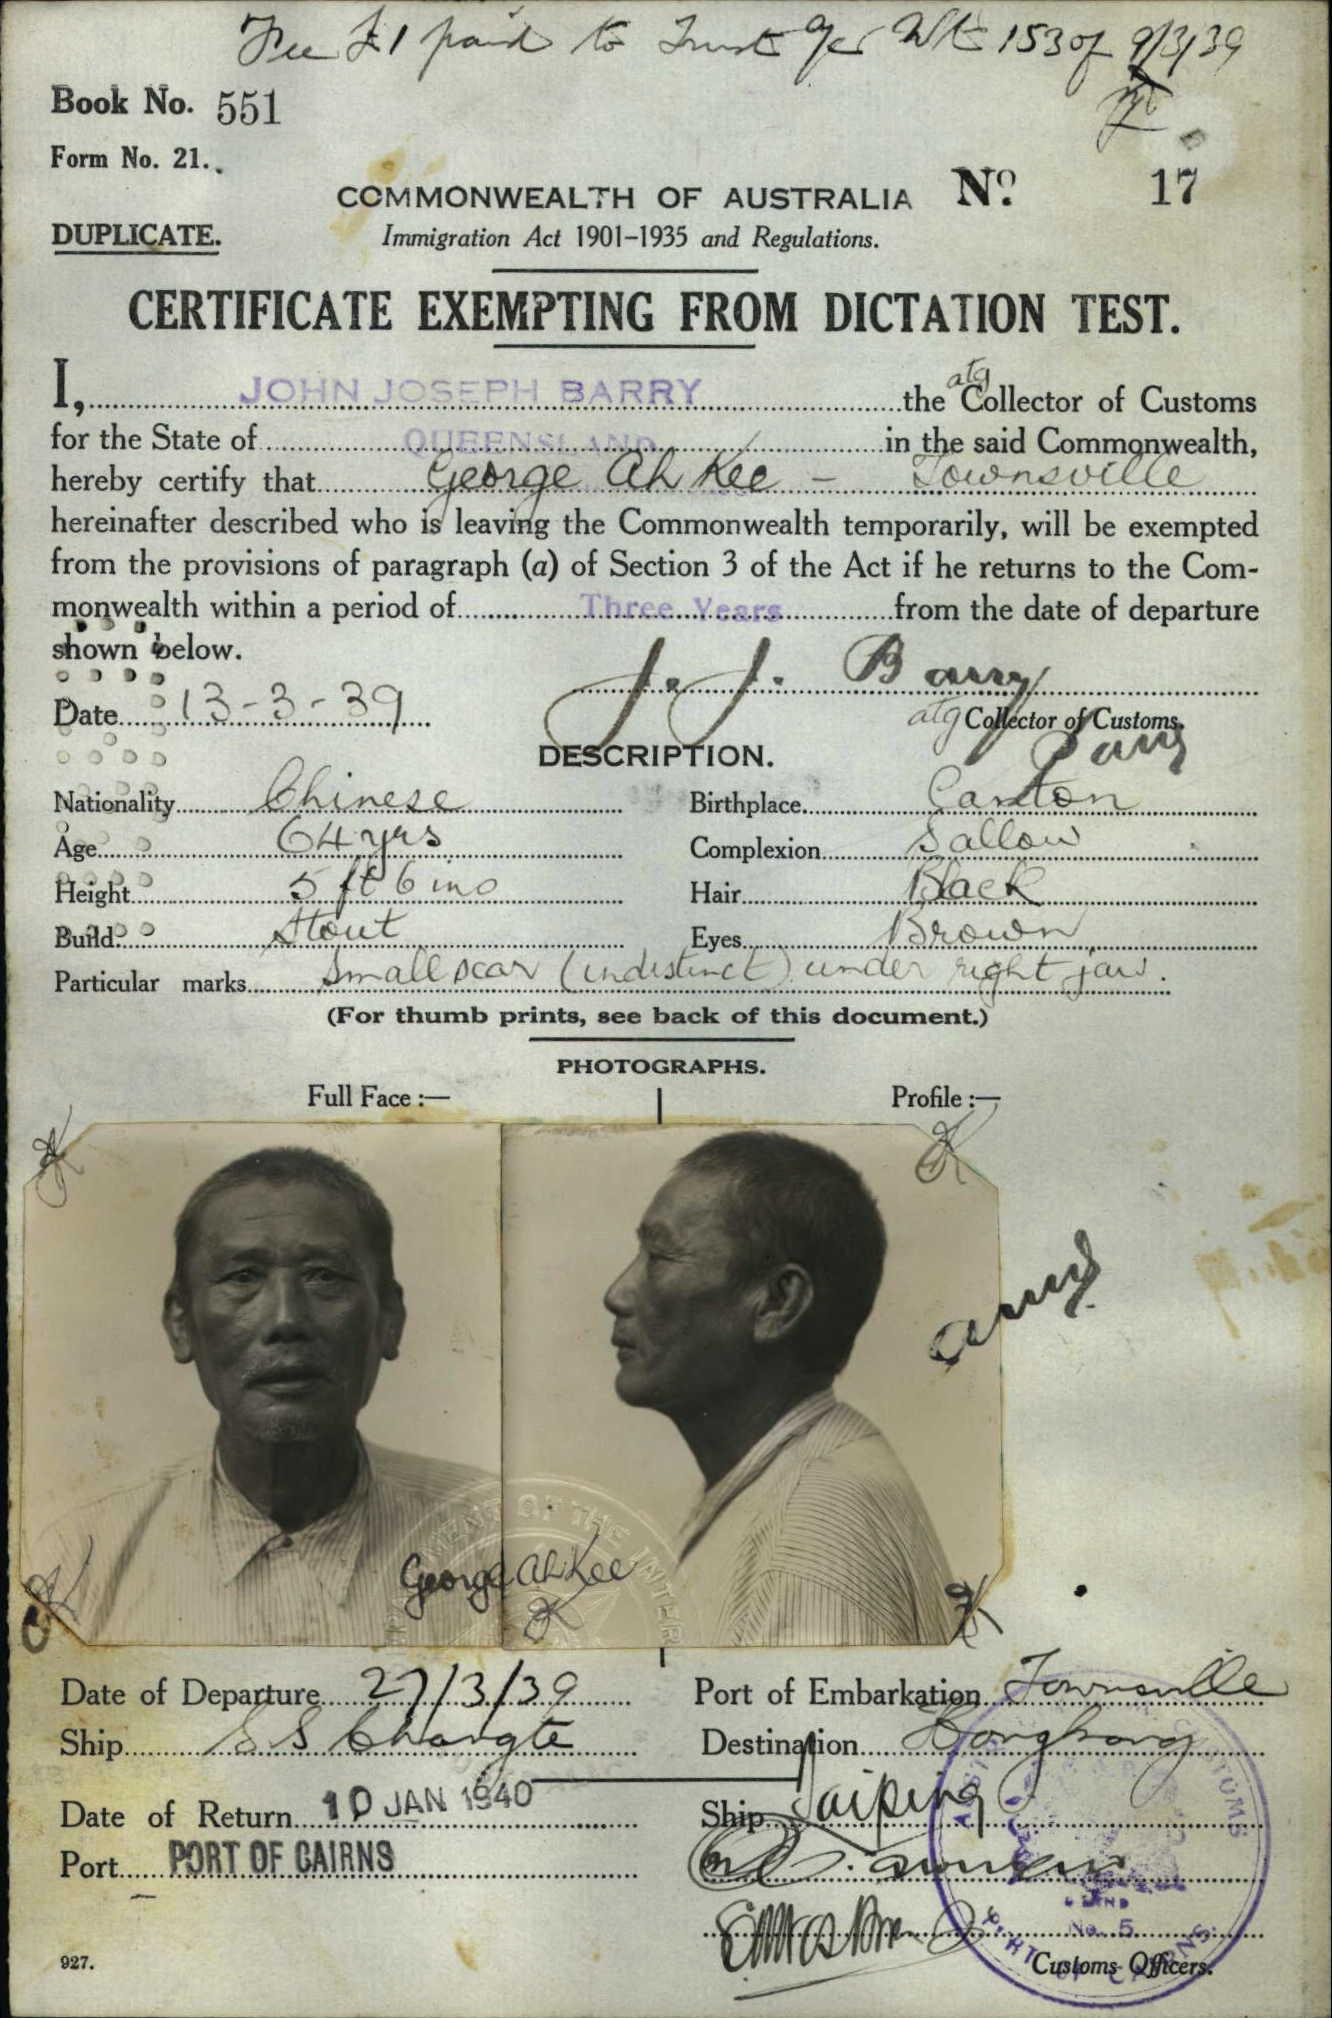 Fee £1 paid to Trust per Wk 153 of 9/3/39
Book No. 551
Form No. 21.
COMMONWEALTH OF AUSTRALIA No. 17
DUPLICATE.
Immigration Act 1901–1935 and Regulations.
CERTIFICATE EXEMPTING FROM DICTATION TEST.
I, JOHN JOSEPH BARRY the atg Collector of Customs
for the State of QUEENSLAND in the said Commonwealth,
hereby certify that George Ah Kee – Townsville
hereinafter described who is leaving the Commonwealth temporarily, will be exempted
from the provisions of paragraph (a) of Section 3 of the Act if he returns to the Com-
monwealth within a period of Three Years from the date of departure
shown below.
J. J. Barry
Date 13-3-39
atg Collector of Customs.
Barry
DESCRIPTION.
Nationality Chinese Birthplace Canton
Age 64 yrs Complexion Sallow
Height 5 ft 6 ins Hair Black
Build Stout Eyes Brown
Particular marks Small scar (indistinct) under right jaw.
(For thumb prints, see back of this document.)
PHOTOGRAPHS.
Full Face :— Profile :—
MENT OF THE INTER
George Ah Kee
Date of Departure 27/3/39 Port of Embarkation Townsville
Ship SS Changte Destination Hongkong
Date of Return 10 JAN 1940 Ship Taiping
Port PORT OF CAIRNS
CUSTOMS
No. 5
PORT OF CAIRNS
927.
Customs Officers.